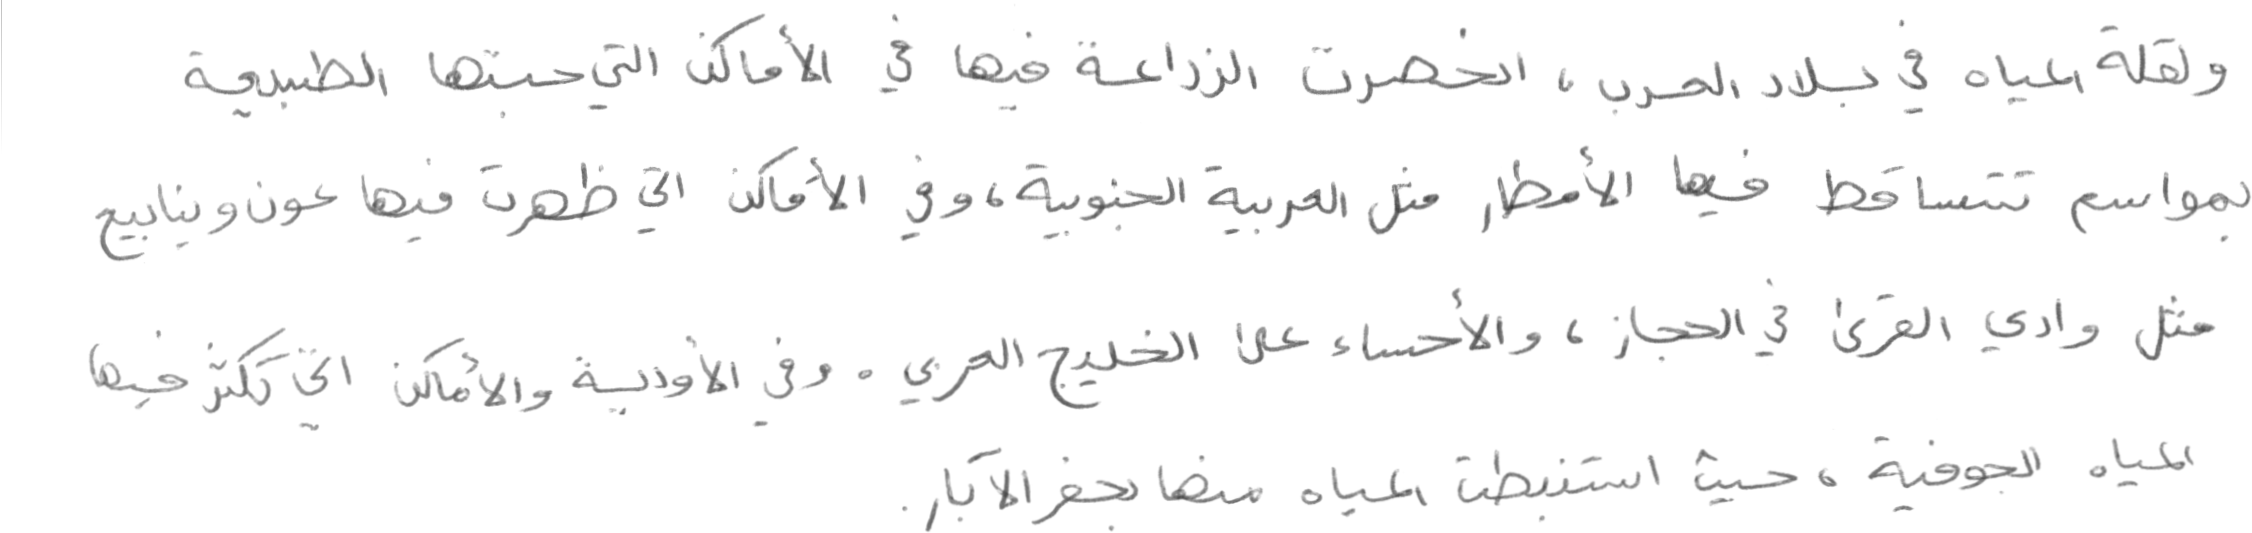 ولقلة المياه في بلاد العرب، انحصرت الزراعة فيها في الأماكن التي حبتها الطبيعة
بمواسم تتساقط فيها الأمطار مثل العربية الجنوبية، وفي الأماكن التي ظهرت فيها عون وينابيع
مثل وادي القرى في الحجاز، والأحساء على الخليج العربي. وفي الأودية والأماكن التي تكثر فيها
المياه الجوفية، حيث استنبطت المياه منها بحفر الآبار.